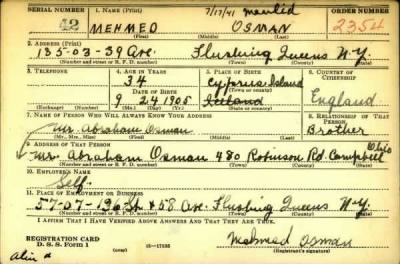 SERIAL NUMBER 1. NAME (Print) 7/17/41 mailed ORDER NUMBER
42 MEHMED OSMAN 2354
(First) (Middle) (Last)
2. ADDRESS (Print)
135-03-39 Ave. Flushing Queens N-Y.
(Number and street or R. F. D. number) (Town) (County) (State)
3. TELEPHONE 4. AGE IN YEARS 5. PLACE OF BIRTH 6. COUNTRY OF CITIZENSHIP
34 Cyprus Island
DATE OF BIRTH (Town or county) England
9 24 1905 Iceland
(Exchange) (Number) (Mo.) (Day) (Yr.) (State or country)
7. NAME OF PERSON WHO WILL ALWAYS KNOW YOUR ADDRESS 8. RELATIONSHIP OF THAT PERSON
Mr. Abraham Osman Brother
(Mr., Mrs., Miss) (First) (Middle) (Last)
9. ADDRESS OF THAT PERSON Ohio
Mr. Abraham Osman 480 Robinson Rd. Campbell
(Number and street or R. F. D. number) (Town) (County) (State)
10. EMPLOYER'S NAME
Self.
11. PLACE OF EMPLOYMENT OR BUSINESS
57-07-196 St & 58 Ave. Flushing Queens N-Y.
(Number and street or R. F. D. number) (Town) (County) (State)
I AFFIRM THAT I HAVE VERIFIED ABOVE ANSWERS AND THAT THEY ARE TRUE.
REGISTRATION CARD
D. S. S. Form 1 16-17105 Mehmed Osman
(Registrant's signature)